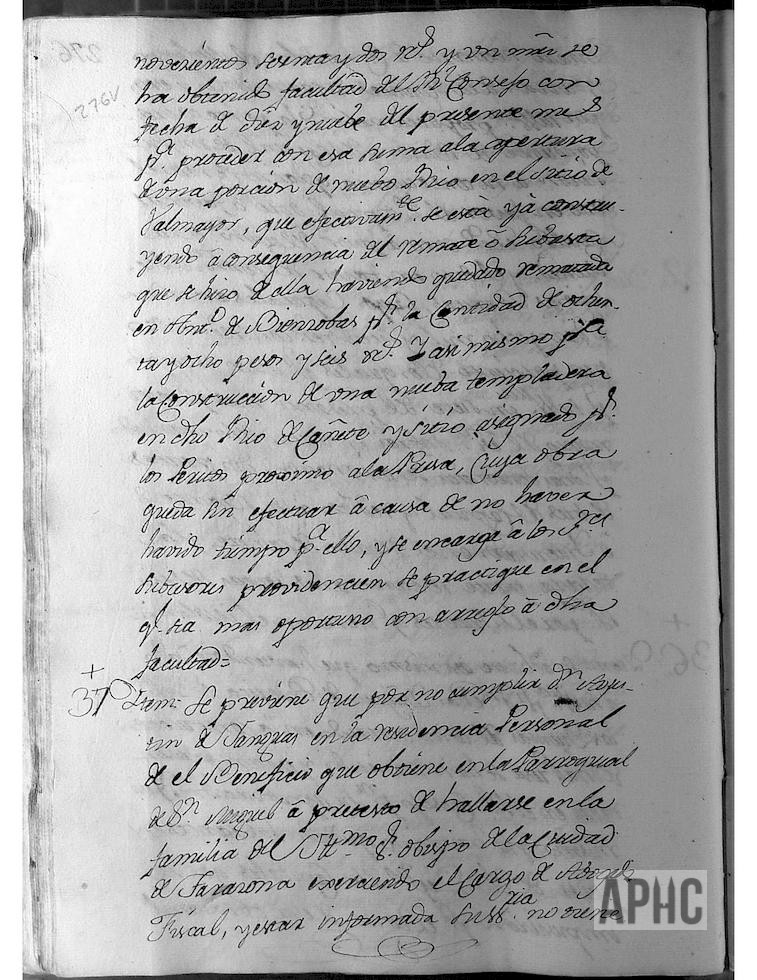 276V
novecientos sesenta y dos rs. y un mri se
ha obtenido facultad del Rl. Consejo con
fecha de diez y nuebe del presente mes
pa. proceder con esa suma a la apertura
de una porcion de nuebo Rio en el sitio de
Valmayor, que efectivamte. se está yà constru-
yendo â consequencia del remate ô subasta
que se hizo de alla haviendo quedado rematada
en Anto. de Bienzobas pr. la Cantidad de ochen-
ta y ocho pesos y seis rs. Y asi mismo pa.
la Construccion de una nueba templadera
en dho Rio de Cañete y sitio asignado pr.
los Peritos proximo a la Presa, Cuya obra
queda sin efectuar â causa de no haver
havido tiempo pa. ello, y se encarga â los Sres
subcesores providencien se practique en el
q. sea mas oportuno con arreglo â dha
facultad=
+
37 Item: Se previene que por no cumplir dn. Agus-
tin de Fanguas en la residencia Personal
de el Beneficio que obtiene en la Parroquial
de Sn. Miguel â pretesto de hallarse en la
familia del Iltmo. Sr. obispo de la Ciudad
de Tarazona exerciendo el Cargo de Abogado
Fiscal, y estar informada su Sria. no tiene
APHC